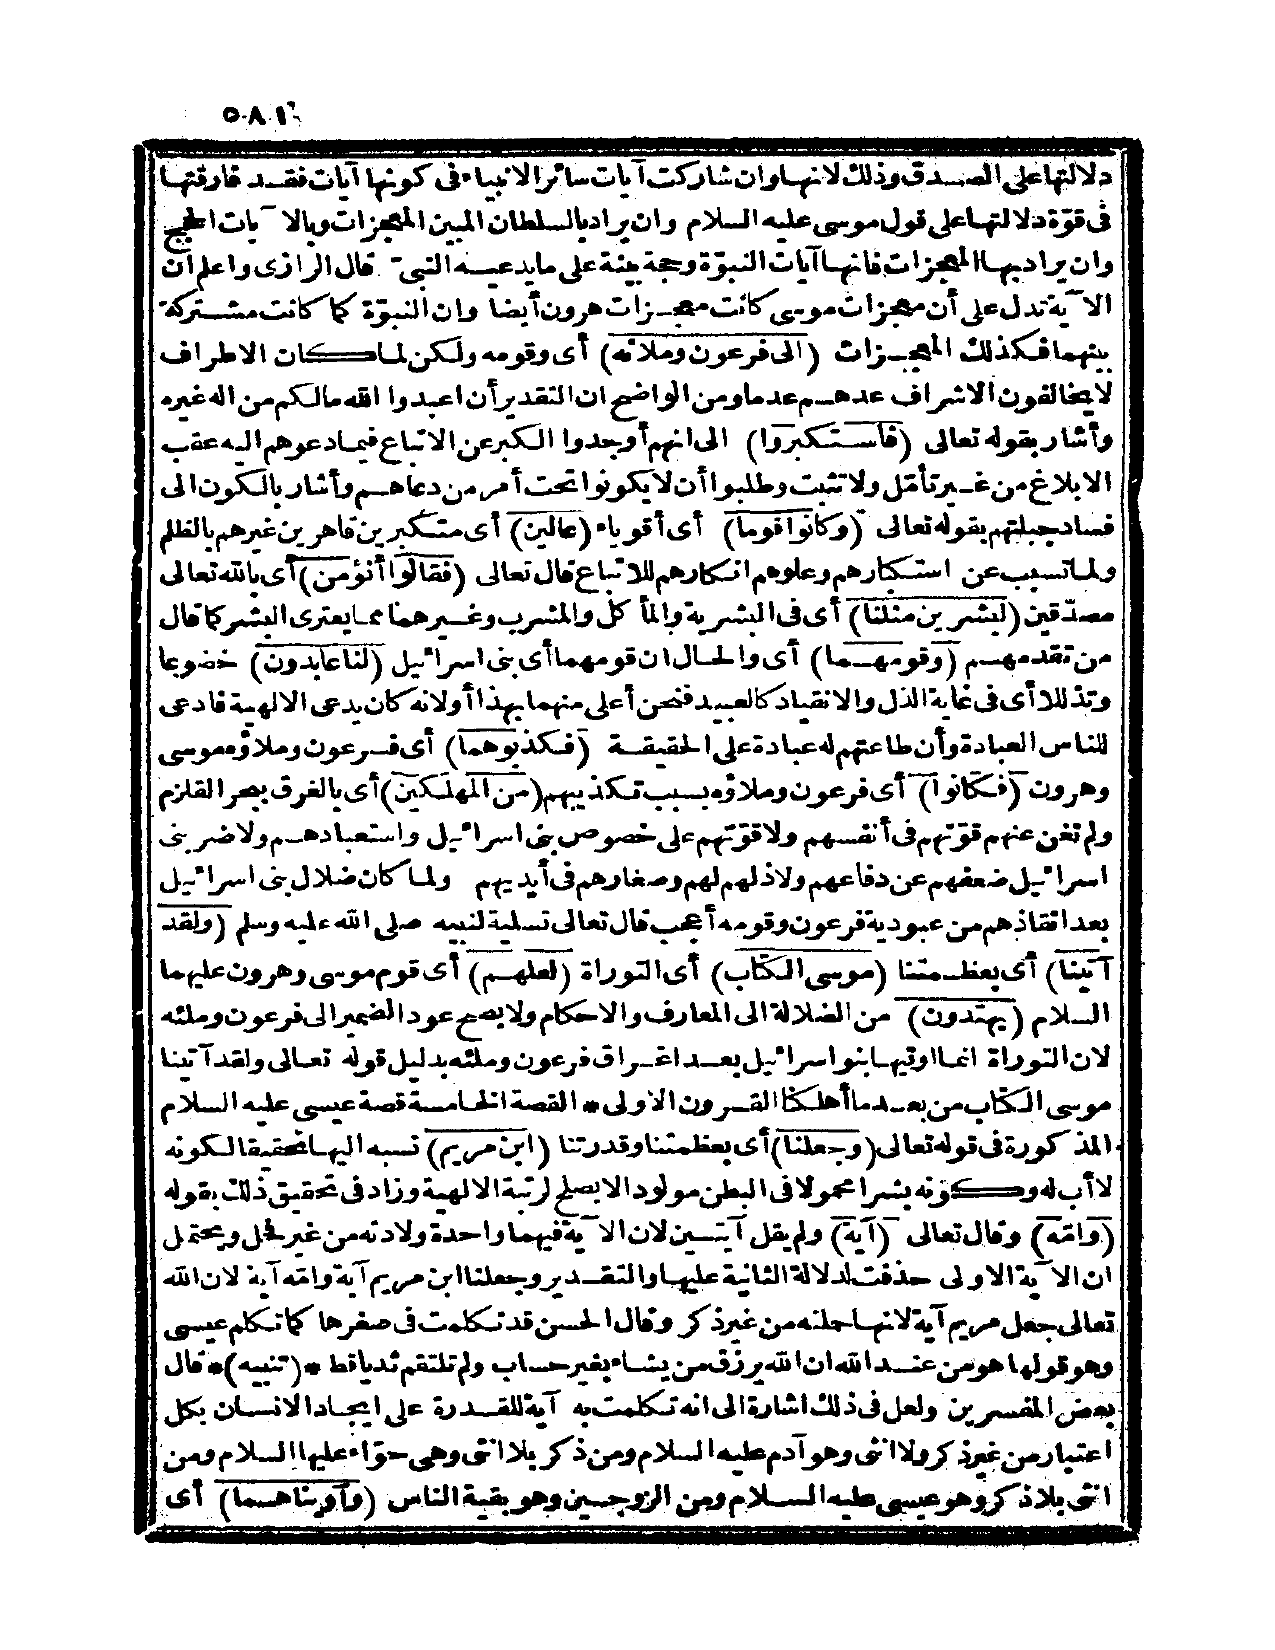 ٥٨١٦
دلالتها على الصدق وذلك لانها وان شاركت آيات سائر الانبياء فى كونها آيات فقد فارقتها
فى قوّة دلالتها على قول موسى عليه السلام وان يراد بالسلطان المبين المعجزات وبالا آيات الحجج
وان يراد بها المعجزات فانها آيات النبوّة وحجة بينة على ما يدعيه النبىّ قال الرازى واعلم أن
الا آية تدل على أن معجزات موسى كانت معجزات هرون أيضا وان النبوّة كما كانت مشتركة
بينهما فكذلك المعجزات (الى فرعون وملائه) أى وقومه ولكن لما كان الاطراف
لا يخالفون الاشراف عدهم عدما ومن الواضح ان التقدير أن اعبدوا الله مالكم من اله غيره
وأشار بقوله تعالى (فاستكبروا) الى انهم أوجدوا الكبر عن الاتباع فيما دعوهم اليه عقب
الابلاغ من غير تأمّل ولا تثبت وطلبوا أن لا يكونوا تحت أمر من دعاهم وأشار بالكون الى
فساد جبلتهم بقوله تعالى (وكانوا قوما) أى أقوياء (عالين) أى متكبرين قاهرين غيرهم بالظلم
ولما تسبب عن استكبارهم وعلوهم انكارهم للاتباع قال تعالى (فقالوا أنؤمن) أى بالله تعالى
مصدّقين (لبشرين مثلنا) أى فى البشرية والمأكل والمشرب وغيرهما مما يعترى البشر كما قال
من تقدمهم (وقومهما) أى والحال ان قومهما أى بنى اسرائيل (لنا عابدون) خضوعا
وتذللا أى فى غاية الذل والانقياد كالعبيد فنحن أعلى منهما بهذا أولانه كان يدعى الالهية فادعى
للناس العبادة وأن طاعتهم له عبادة على الحقيقة (فكذبوهما) أى فرعون وملاؤه موسى
وهرون (فكانوا) أى فرعون وملاؤه بسبب تكذيبهم (من المهلكين) أى بالغرق ببحر القلزم
ولم تغن عنهم قوّتهم فى أنفسهم ولا قوّتهم على خصوص بنى اسرائيل واستعبادهم ولا ضر بنى
اسرائيل ضعفهم عن دفاعهم ولا ذلهم لهم وصغارهم فى أيديهم ولما كان ضلال بنى اسرائيل
بعد انقاذهم من عبودية فرعون وقومه أعجب قال تعالى تسلية لنبيه صلى الله عليه وسلم (ولقد
آتينا) أى بعظمتنا (موسى الكتاب) أى التوراة (لعلهم) أى قوم موسى وهرون عليهما
السلام (يهتدون) من الضلالة الى المعارف والاحكام ولا يصح عود الضمير الى فرعون وملئه
لان التوراة انما اوتيها بنو اسرائيل بعد اغراق فرعون وملئه بدليل قوله تعالى ولقد آتينا
موسى الكتاب من بعد ما أهلكنا القرون الاولى * القصة الخامسة قصة عيسى عليه السلام
المذكورة فى قوله تعالى (وجعلنا) أى بعظمتنا وقدرتنا (ابن مريم) نسبه اليها تحقيقا لكونه
لا أب له وكونه بشرا محمولا فى البطن مولودا لا يصلح لرتبة الالهية وزاد فى تحقيق ذلك بقوله
(وامّه) وقال تعالى (آية) ولم يقل آيتين لان الا آية فيهما واحدة ولادته من غير فحل ويحتمل
ان الا آية الاولى حذفت لدلالة الثانية عليها والتقدير وجعلنا ابن مريم آية وامّه آية لان الله
تعالى جعل مريم آية لانها حملته من غير ذكر وقال الحسن قد تكلمت فى صغرها كما تكلم عيسى
وهو قولها هو من عند الله ان الله يرزق من يشاء بغير حساب ولم تلتقم ثديا قط *(تنبيه)* قال
بعض المفسرين ولعل فى ذلك اشارة الى انه تكلمت به آية للقدرة على ايجاد الانسان بكل
اعتبار من غير ذكر ولا انثى وهو آدم عليه السلام ومن ذكر بلا انثى وهى حوّاء عليها السلام ومن
انثى بلا ذكر وهو عيسى عليه السلام ومن الزوجين وهو بقية الناس (وآويناهما) أى